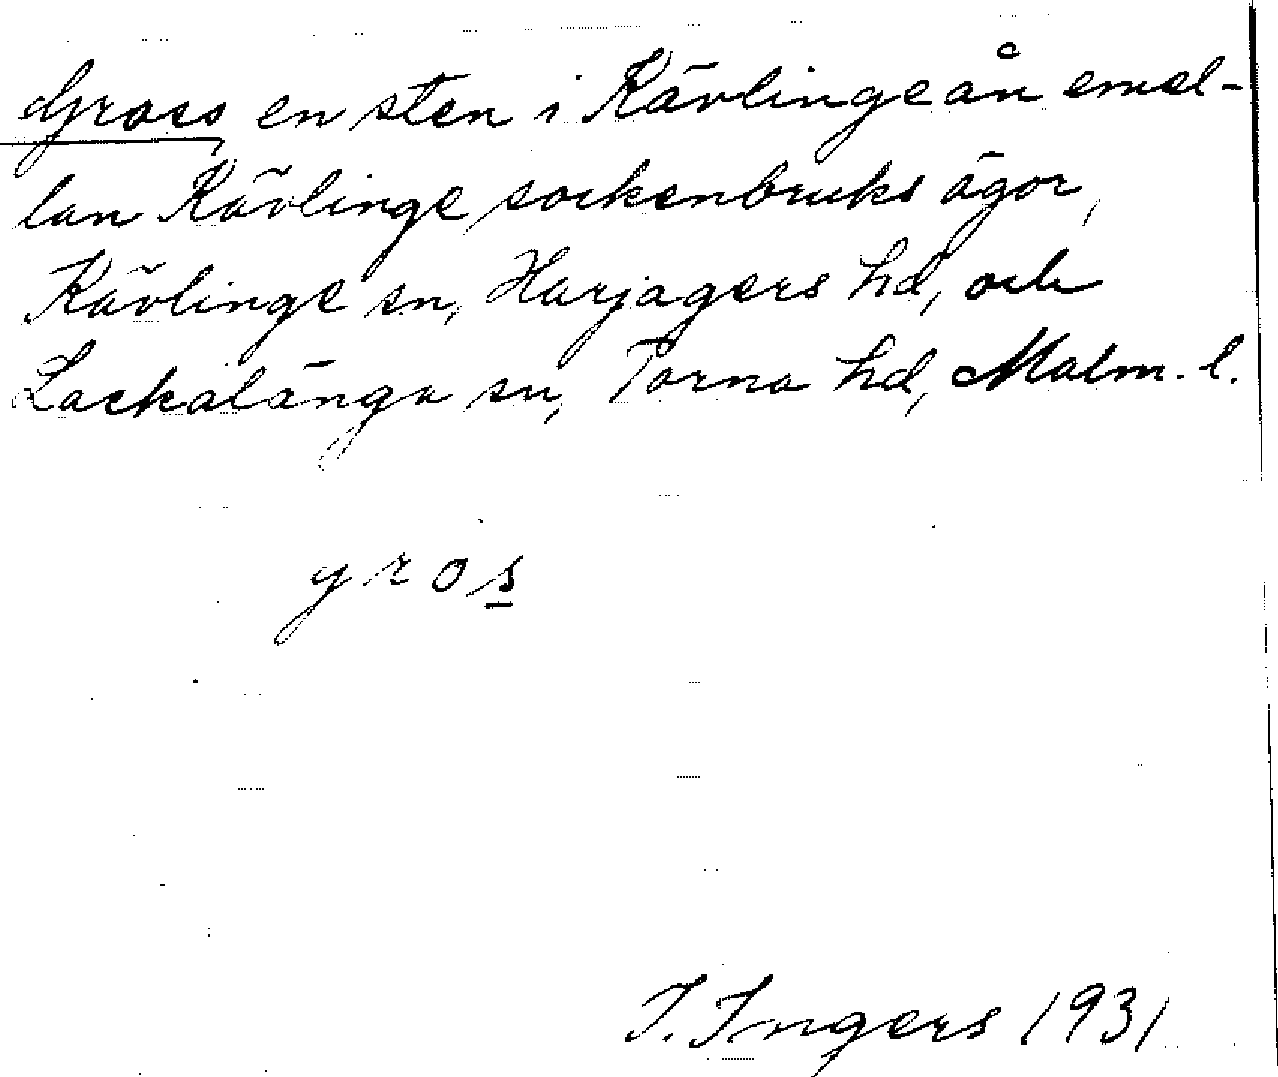 Gross, en sten i Kävlingeån emel-
lan Kävlinge sockenbruks ägor,
Kävlinge sn, Harjagers hd, och
Lackalänga sn, Torna hd, Malm. l.
gros
I. Ingers 1931